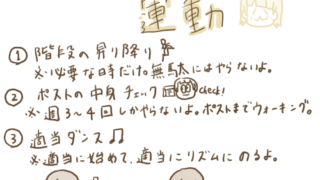 運動
① 階段の昇り降り
※必要な時だけ。無駄にはやらないよ。
② ポストの中身チェック check!
※週3〜4回しかやらないよ。ポストまでウォーキング。
③ 適当ダンス♫
※適当に始めて、適当にリズムにのるよ。